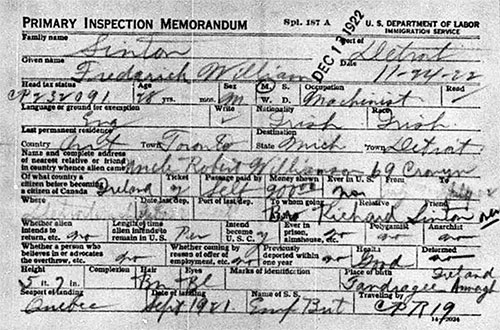 PRIMARY INSPECTION MEMORANDUM Spl. 187 A U. S. DEPARTMENT OF LABOR
IMMIGRATION SERVICE
DEC 1 1922
Family name Port of
Sinton Detroit
Given name Date
Frederick William 11-24-22
Head tax status Age Sex M. S. Occupation Read
28 yrs. mos. M W. D. Machinist
Language or ground for exemption Write Nationality Race
Eng Irish Irish
Last permanent residence Destination
Country Town State
Toronto Mich Detroit
Name and complete address
of nearest relative or friend
in country whence alien came Uncle Robert 69
Of what country a citizen before becoming a citizen of Canada Ticket Passage paid by Money shown Ever in U. S. From To
Ireland y self no
Where Date last dep. Port of last dep. To whom going Relative Friend
Bro Richard Sinton
Whether alien intends to return, etc. no Length of time alien intends to remain in U. S. Per Intend become U. S. C. y Ever in prison, almshouse, etc. no Polygamist no Anarchist no
Whether a person who believes in or advocates the overthrow, etc. no Whether coming by reason of offer of employment, etc. no Previously deported within one year no Health Gnd Deformed no
Height Complexion Hair Eyes Marks of identification Place of birth Ireland
5 ft. 7 in. Bn Bl Tandragee Armagh
Seaport of landing Date of landing Name of S. S. Traveling by
Quebec Sept 1921 Emp Brit CPR 19
14-2024